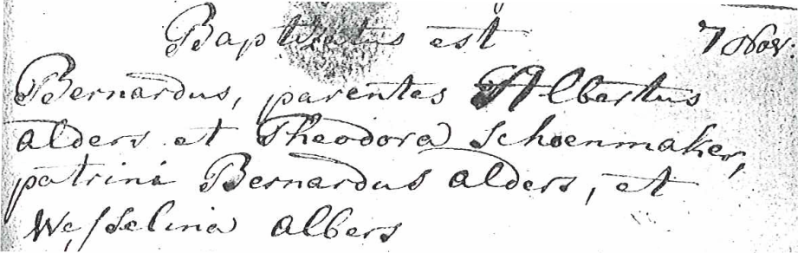 Baptisatus est 7 Nov.
Bernardus, parentes Albertus
alders et Theodora Schoenmaker,
patrini Bernardus alders, et
Wesselina albers